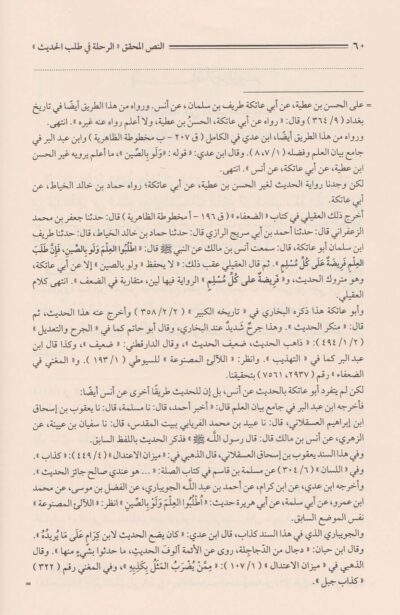 ٦٠ النص المحقق « الرحلة في طلب الحديث »
= على الحسن بن عطية، عن أبي عاتكة طريف بن سلمان، عن أنس. ورواه من هذا الطريق أيضًا في تاريخ
بغداد (٩/ ٣٦٤) وقال: « رواه عن أبي عاتكة، الحسنُ بن عطية، ولا أعلم رواه عنه غيره ». انتهى.
ورواه من هذا الطريق أيضًا، ابن عدي في الكامل ( ق ٢٠٧ - ب مخطوطة الظاهرية ) وابن عبد البر في
جامع بيان العلم وفضله (١/ ٧،٨). وقال ابن عدي: « قوله : « وَلَو بِالصِّين »، ما أعلم يرويه غير الحسن
ابن عطية، عن أبي عاتكة، عن أنس ». انتهى.
لكن وجدنا رواية الحديث لغير الحسن بن عطية، عن أبي عاتكة؛ رواه حماد بن خالد الخياط، عن
أبي عاتكة.
أخرج ذلك العقيلي في كتاب « الضعفاء » ( ق ١٩٦ - أ مخطوطة الظاهرية ) قال: حدثنا جعفر بن محمد
الزعفراني قال: حدثنا أحمد بن أبي سريج الرازي قال: حدثنا حماد بن خالد الخياط، قال: حدثنا طريف
ابن سلمان أبو عاتكة، قال: سمعت أنس بن مالك عن النبي ﷺ قال: « اطْلُبُوا الْعِلْمَ وَلَو بِالصِّين، فَإِنَّ طَلَبَ
العِلْمِ فَرِيضَةٌ عَلَى كُلِّ مُسْلِمٍ ». ثم قال العقيلي عقب ذلك: « لا يحفظ « ولو بالصين » إلا عن أبي عاتكة،
وهو متروك الحديث، و« فَرِيضَةٌ على كُلِّ مُسْلِمٍ » الرواية فيها لين، متقاربة في الضعف ». انتهى كلام
العقيلي.
وأبو عاتكة هذا ذكره البخاري في « تاريخه الكبير » (٢/ ٢/ ٣٥٨) وأخرج عنه هذا الحديث، ثم
قال: « منكر الحديث ». وهذا جرحٌ شديدٌ عند البخاري، وقال أبو حاتم كما في « الجرح والتعديل »
(٢/ ١/ ٤٩٤): « ذاهب الحديث، ضعيف الحديث »، وقال الدارقطني: « ضعيف »، وكذا قال ابن
عبد البر كما في « التهذيب ». وانظر: « اللآلئ المصنوعة » للسيوطي (١/ ١٩٣). و« المغني في
الضعفاء » رقم (٢٩٣٧، ٧٥٦١) بتحقيقنا.
لكن لم يتفرد أبو عاتكة بالحديث عن أنس، بل إن للحديث طريقًا أخرى عن أنس أيضًا:
فأخرجه ابن عبد البر في جامع بيان العلم قال: « أخبر أحمد، قال: نا مسلمة، قال: نا يعقوب بن إسحاق
ابن إبراهيم العسقلاني، قال: نا عبيد بن محمد الفريابي ببيت المقدس، قال: نا سفيان بن عيينة، عن
الزهري، عن أنس بن مالك قال: قال رسول اللَّـه ﷺ » فذكر الحديث باللفظ السابق.
وفي هذا السند يعقوب بن إسحاق العسقلاني، قال الذهبي في: « ميزان الاعتدال » (٤/ ٤٤٩): « كذاب ».
وفي « اللسان » (٦/ ٣٠٤) عن مسلمة بن قاسم في كتاب الصلة: « ... هو عندي صالح جائز الحديث ».
وأخرجه ابن عدي، عن ابن كرام، عن أحمد بن عبد اللَّـه الجويباري، عن الفضل بن موسى، عن محمد
ابن عمرو، عن أبي سلمة، عن أبي هريرة حديث: « اُطْلُبُوا العِلْمَ وَلَوْ بِالصِّين » انظر: « اللآلئ المصنوعة »
نفس الموضع السابق.
والجويباري الذي في هذا السند كذاب، قال ابن عدي: « كان يضع الحديث لابن كِرَامٍ عَلَى مَا يُرِيدُهُ ». 
وقال ابن حبان: « دجال من الدَّجاجِلة، روى عن الأئمة ألوفَ الحديثِ، ما حدثوا بشيءٍ منها ». وقال
الذهبي في « ميزان الاعتدال » (١/ ١٠٧): « مِمَّنْ يُضْرَبُ المَثَلُ بِكَذِبِهِ »، وفي المغني رقم (٣٢٢)
« كذاب جبل ». =